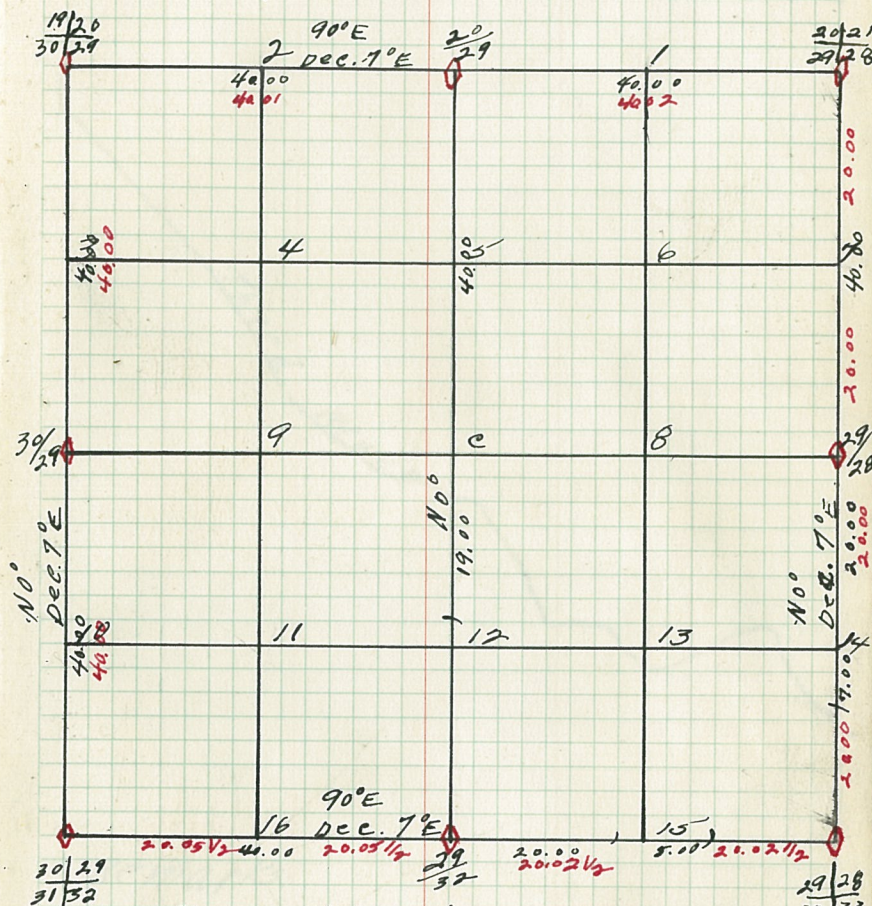 19|20
30|29
90°E
Dec. 7°E
2
20
29
1
20|21
29|28
40.00
40.01
40.00
40.02
20.00
4
5
6
40.00
40.00
40.00
20.00
30/29
9
C
8
29/28
N0°
Dec. 7°E
N0°
19.00
N0°
Dec. 7°E
20.00
20.00
11
12
13
14
40.00
17.00
20.00
90°E
16
Dec. 7°E
15
20.05½
40.00
20.05½
20.00
20.02½
5.00
20.02½
30|29
31|32
29
32
29|28